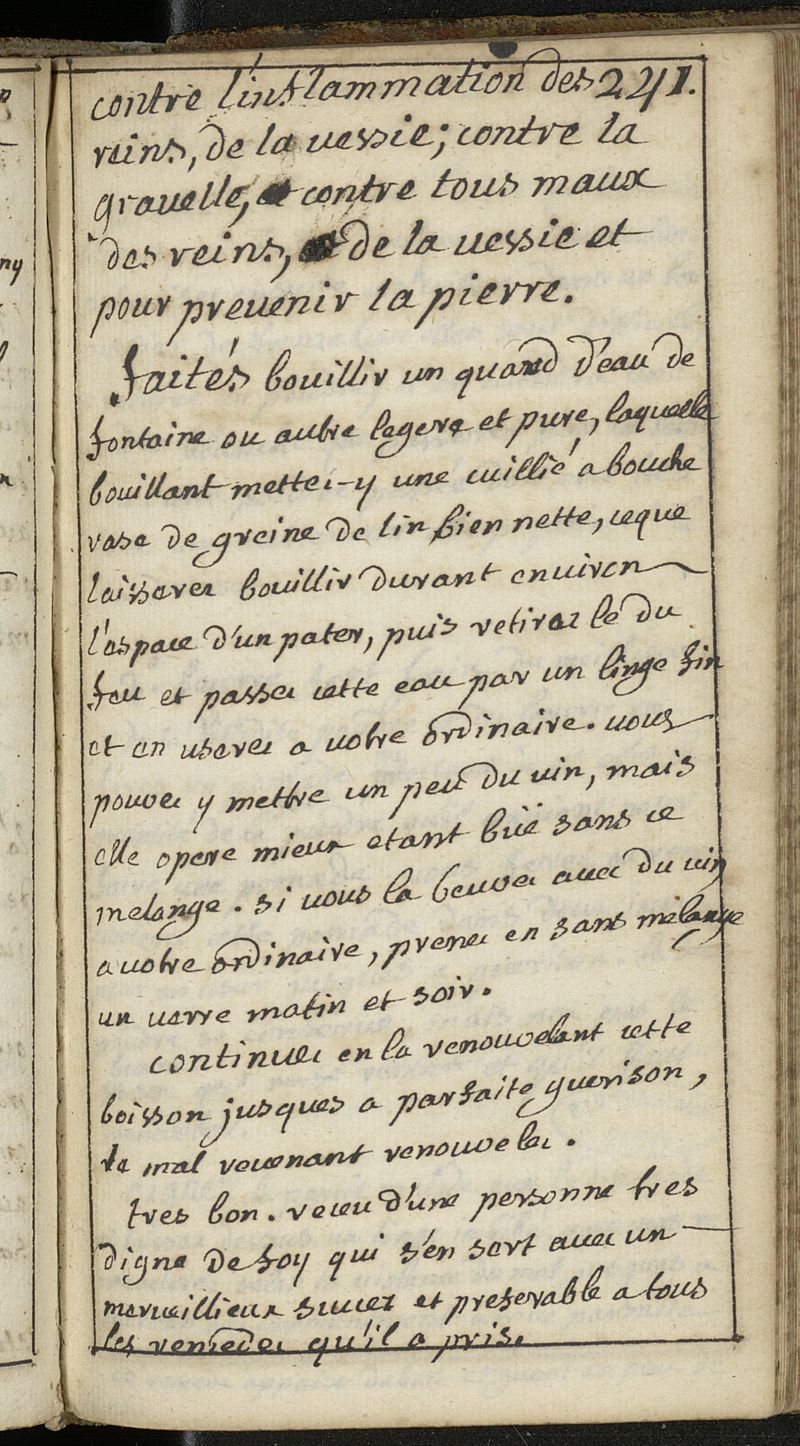 contre l'inflammation des 241.
reins, de la vessie; contre la
gravelle, et contre tous maux
des reins, et de la vessie et
pour prevenir la pierre.
faités bouillir un quard d'eau de
fontaine ou autre legere et pure, laquelle
bouillant mettez-y une cuillié a bouche
rase de greine de lin bien nette, ceque
laisserez bouillir durant environ
l'espace d'un pater, puis retirez le du
feu et passez cette eau par un linge fin
et en userez a votre ordinaire. vous
pouvez y mettre un peu du vin, mais
elle opere mieux etant büe sans ce
melange. si vous la beuvez avec du vin
a votre ordinaire, prenez en sans melange
un verre matin et soir.
continuez en la renouvelant cette
boisson jusques a parfaite guerison,
le mal revenant renouvelez.
tres bon. receu d'une personne tres
digne de foy qui s'en sert avec un
merveillieux succez et preferable a tous
les remedes qu'il a pris.